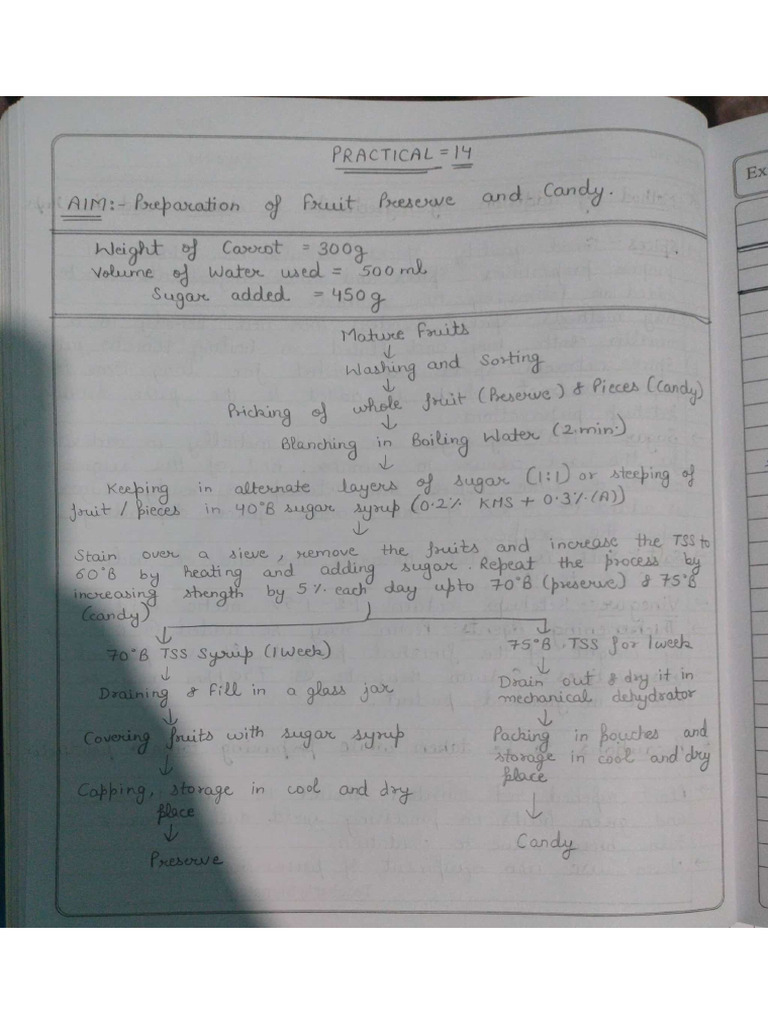 PRACTICAL = 14
AIM:- Preparation of Fruit Preserve and Candy.
Weight of Carrot = 300g
Volume of Water used = 500 ml
Sugar added = 450 g
Mature Fruits
↓
Washing and Sorting
↓
Pricking of whole fruit (Preserve) & Pieces (Candy)
↓
Blanching in Boiling Water (2 min.)
↓
Keeping in alternate layers of sugar (1:1) or steeping of
fruit / pieces in 40°B sugar syrup (0.2% KMS + 0.3% (A))
↓
Stain over a sieve, remove the fruits and increase the TSS to
60°B by heating and adding sugar. Repeat the process by
increasing strength by 5% each day upto 70°B (preserve) & 75°B
(candy)
70°B TSS Syrup (1 Week)
↓
Draining & Fill in a glass jar
↓
Covering fruits with sugar syrup
↓
Capping, storage in cool and dry
place
↓
Preserve
75°B TSS for 1 week
↓
Drain out & dry it in
mechanical dehydrator
↓
Packing in Pouches and
storage in cool and dry
place
↓
Candy
Ex